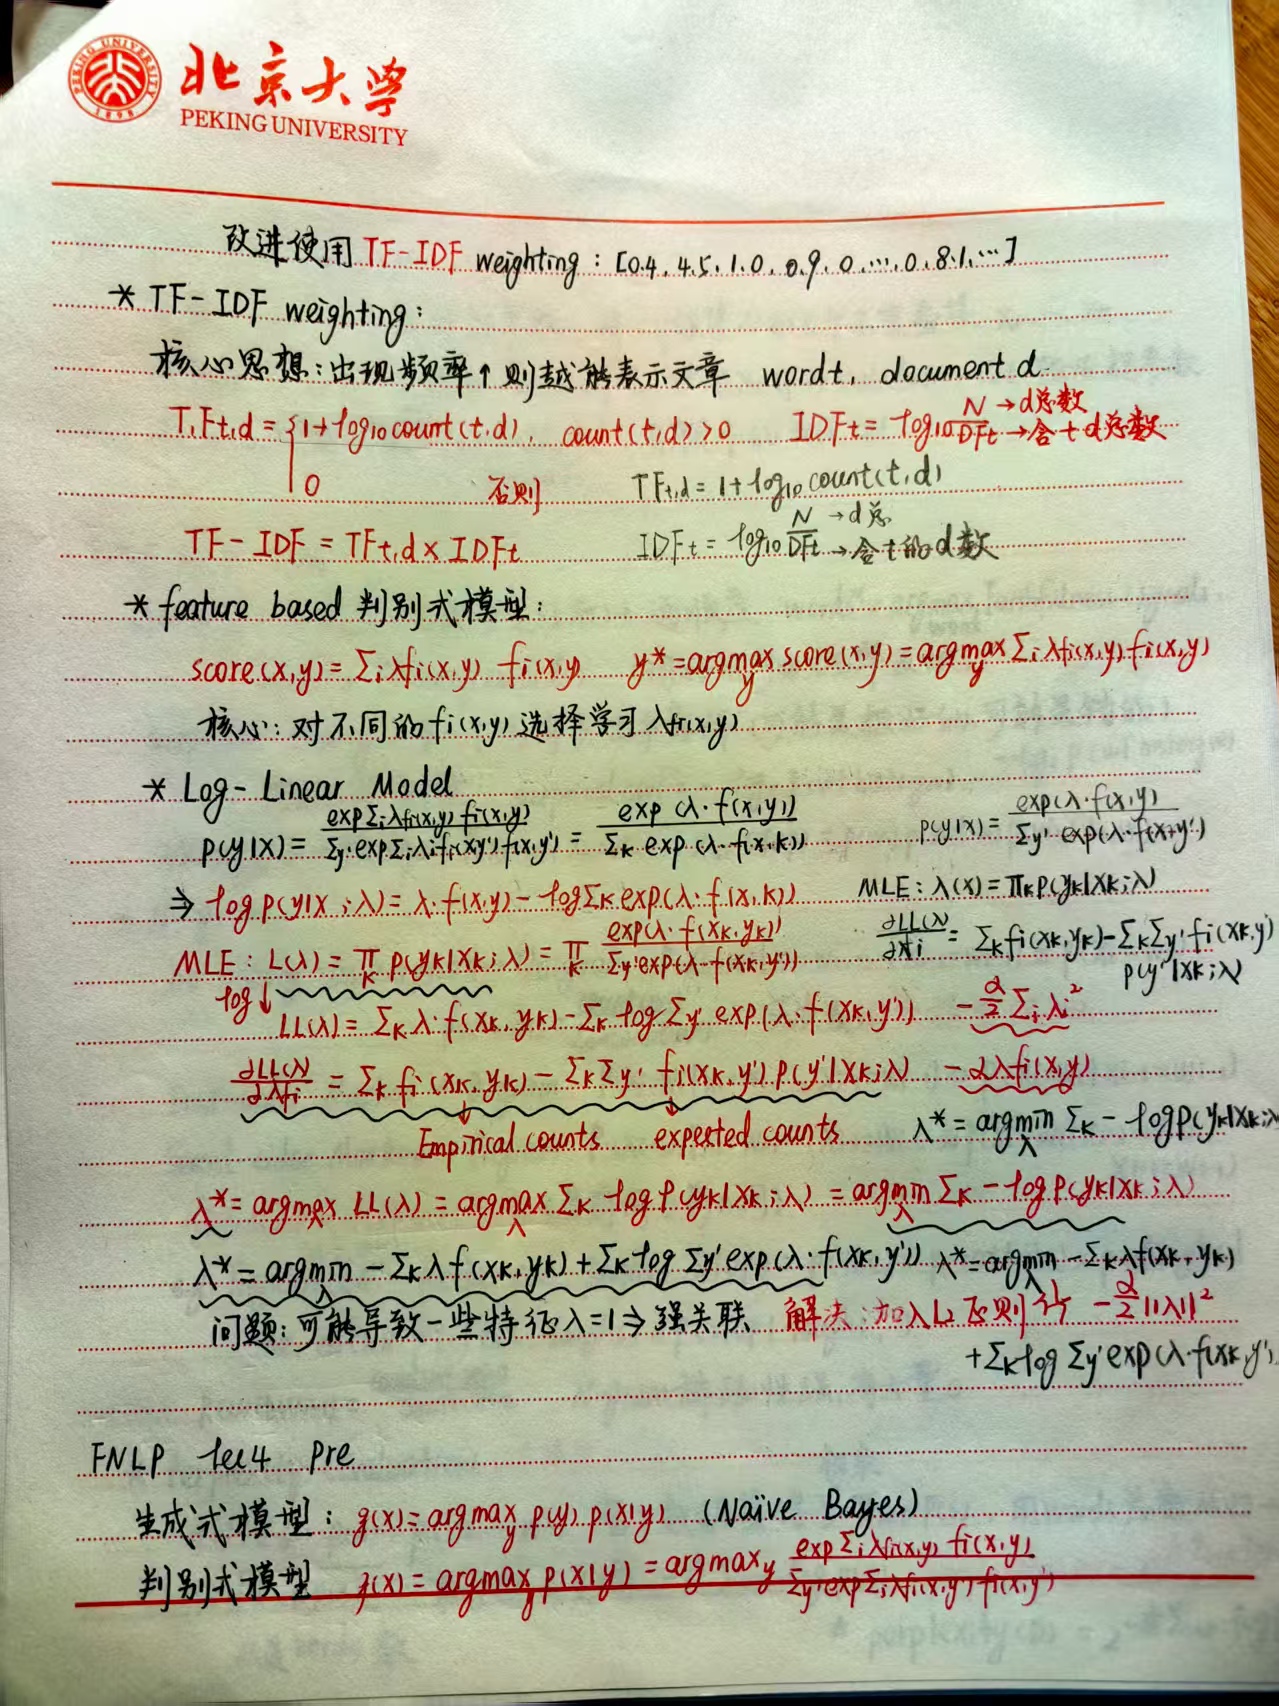 PEKING UNIVERSITY
1898
北京大学
PEKING UNIVERSITY
改进使用 TF-IDF weighting : [0.4, 4.5, 1.0, 0.9, 0, ..., 0, 8.1, ...]
* TF-IDF weighting :
核心思想:出现频率↑则越能表示文章 word t, document d
TFt,d = { 1+log10 count(t,d), count(t,d)>0 IDFt = log10 N/DFt →d总数 →含t d总数
0 否则 TFt,d = 1+log10 count(t,d)
TF-IDF = TFt,d × IDFt IDFt = log10 N/DFt →d总 →含t的d数
* feature based 判别式模型:
score(x,y) = Σi λfi(x,y) fi(x,y) y* = argmax y score(x,y) = argmax y Σi λfi(x,y) fi(x,y)
核心:对不同的fi(x,y)选择学习λfi(x,y)
* Log-Linear Model
p(y|x) = exp Σi λfi(x,y) fi(x,y) / Σy' exp Σi λifi(xy') f(x,y') = exp(λ·f(x,y)) / Σk exp(λ·f(x,k)) p(y|x) = exp(λ·f(x,y) / Σy' exp(λ·f(x+y')
⇒ log p(y|x;λ) = λ·f(x,y) - log Σk exp(λ·f(x,k)) MLE : λ(x) = πk p(yk|xk;λ)
MLE : L(λ) = π k p(yk|xk;λ) = π k exp(λ·f(xk,yk)) / Σy' exp(λ·f(xk,y')) ∂LL(λ) / ∂λi = Σk fi(xk,yk) - Σk Σy' fi(xk,y')
p(y'|xk;λ)
log↓ LL(λ) = Σk λ·f(xk,yk) - Σk log Σy' exp(λ·f(xk,y')) - α/2 Σi λi²
∂LL(λ) / ∂λfi = Σk fi(xk,yk) - Σk Σy' fi(xk,y') p(y'|xk;λ) - αλfi(x,y)
Empirical counts expected counts λ* = argmin λ Σk - log p(yk|xk;λ
λ* = argmax λ LL(λ) = argmax λ Σk log p(yk|xk;λ) = argmin λ Σk - log p(yk|xk;λ)
λ* = argmin λ - Σk λ f(xk,yk) + Σk log Σy' exp(λ·f(xk,y')) λ* = argmin λ - Σk λf(xk,yk)
问题:可能导致一些特征λ=1⇒强关联 解决:加入L2正则化 - α/2 ||λ||²
+ Σk log Σy' exp(λ·f(xk,y')
FNLP lec4 pre
生成式模型: g(x) = argmax y p(y) p(x|y) (Naïve Bayes)
判别式模型 g(x) = argmax y p(x|y) = argmax y exp Σi λfi(x,y) fi(x,y) / Σy' exp Σi λfi(x,y') fi(x,y')